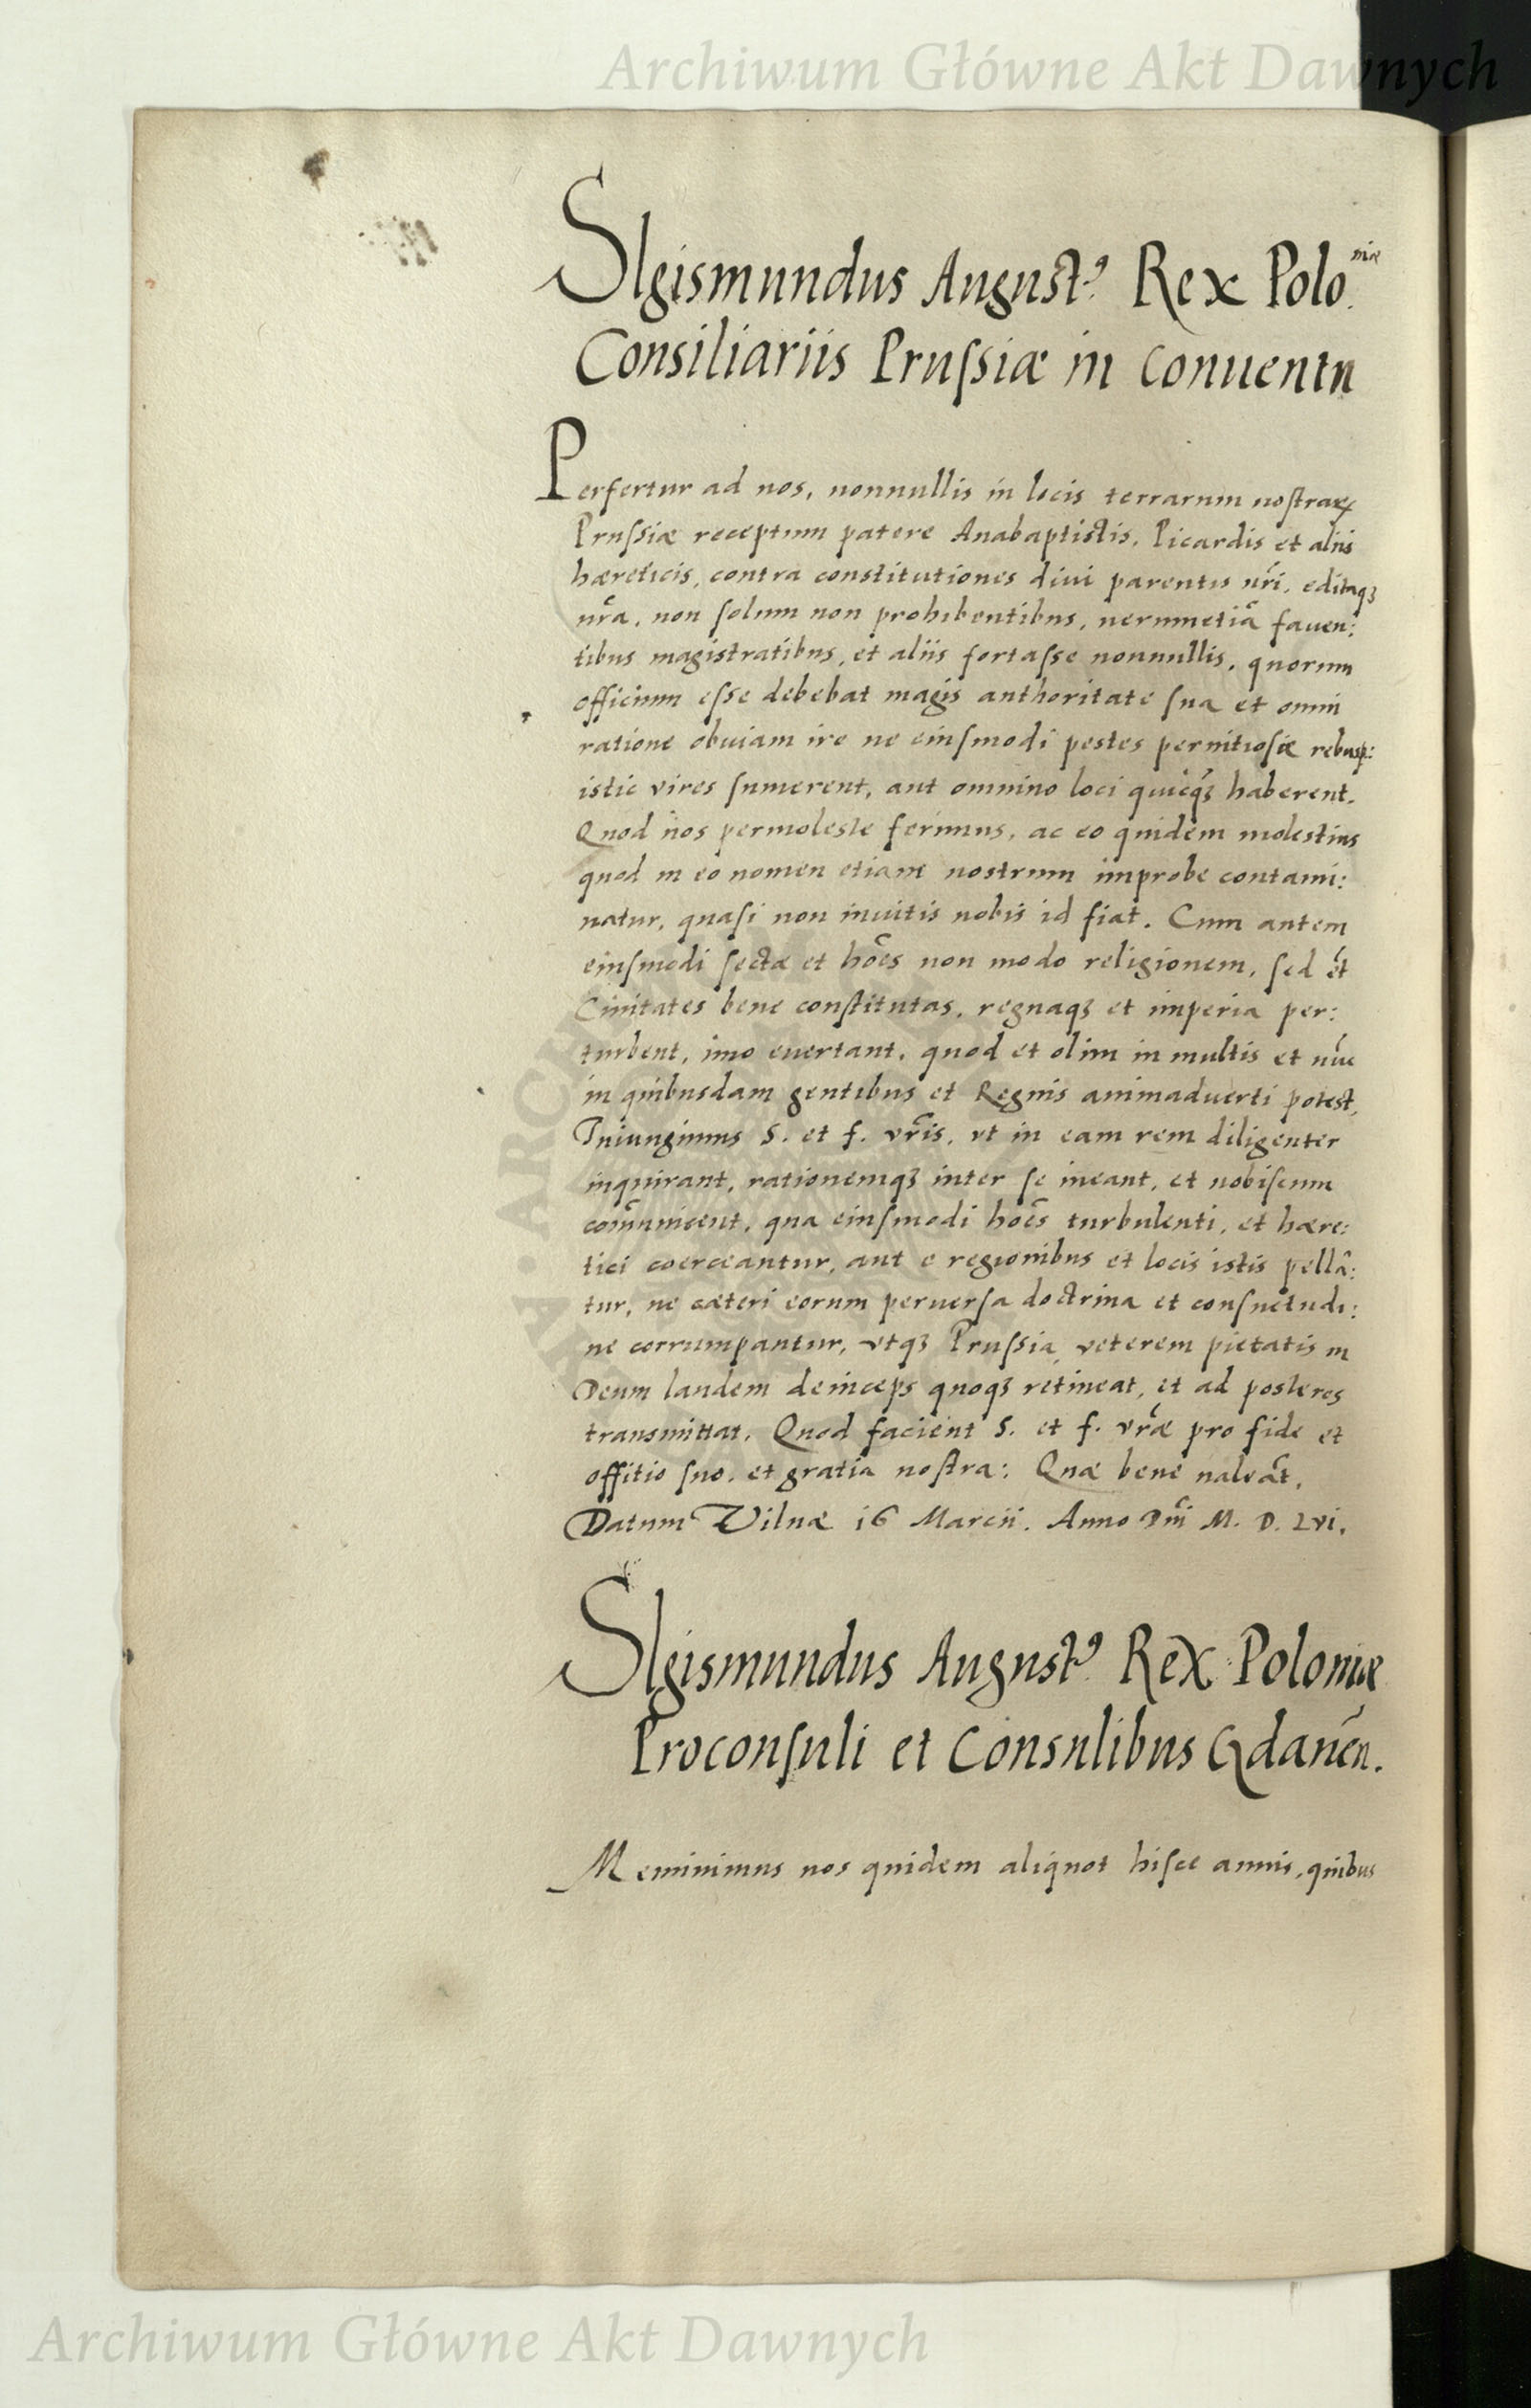 Archiwum Główne Akt Dawnych
SIgismundus Augustꝰ Rex Poloniæ
Consiliariis Prussiæ in Conuentu
Perfertur ad nos, nonnullis in locis terrarum nostraꝝ
Prussiæ receptum patere Anabaptistis, Picardis et aliis
hæreticis, contra constitutiones diui parentis nr̃i, editaqꝫ
nr̃a, non solum non prohibentibus, uerumetiã fauen:
tibus magistratibus, et aliis fortasse nonnullis, quorum
officium esse debebat magis authoritate sua et omni
ratione obuiam ire ne eiusmodi pestes pernitiosæ rebusp:
istic vires sumerent, aut omnino loci quicqꝫ haberent.
Quod nos permoleste ferimus, ac eo quidem molestius
quod in eo nomen etiam nostrum improbe contami:
natur, quasi non inuitis nobis id fiat. Cum autem
eiusmodi sectæ et hoẽs non modo religionem, sed ẽt
Ciuitates bene constitutas, regnaqꝫ et imperia per:
turbent, imo euertant, quod et olim in multis et nũc
in quibusdam gentibus et Regnis animaduerti potest,
Iniungimus S. et f. vr̃is, vt in eam rem diligenter
inquirant, rationemqꝫ inter se ineant, et nobiscum
com̃unicent, qua eiusmodi hoẽs turbulenti, et hære:
tici coerceantur, aut e regionibus et locis istis pellã:
tur, ne cæteri eorum peruersa doctrina et consuetudi:
ne corrumpantur, vtqꝫ Prussia veterem pietatis in
Deum laudem deinceps quoqꝫ retineat, et ad posteros
transmittat. Quod facient S. et f. vr̃æ pro fide et
offitio suo, et gratia nostra: Quæ bene ualeãt.
Datum Vilnæ 16 Marcii. Anno Dñi M. D. Lvi.
SIgismundus Augustꝰ Rex Poloniæ
Proconsuli et Consulibus Gdanẽn.
Meminimus nos quidem aliquot hisce annis, quibus
Archiwum Główne Akt Dawnych